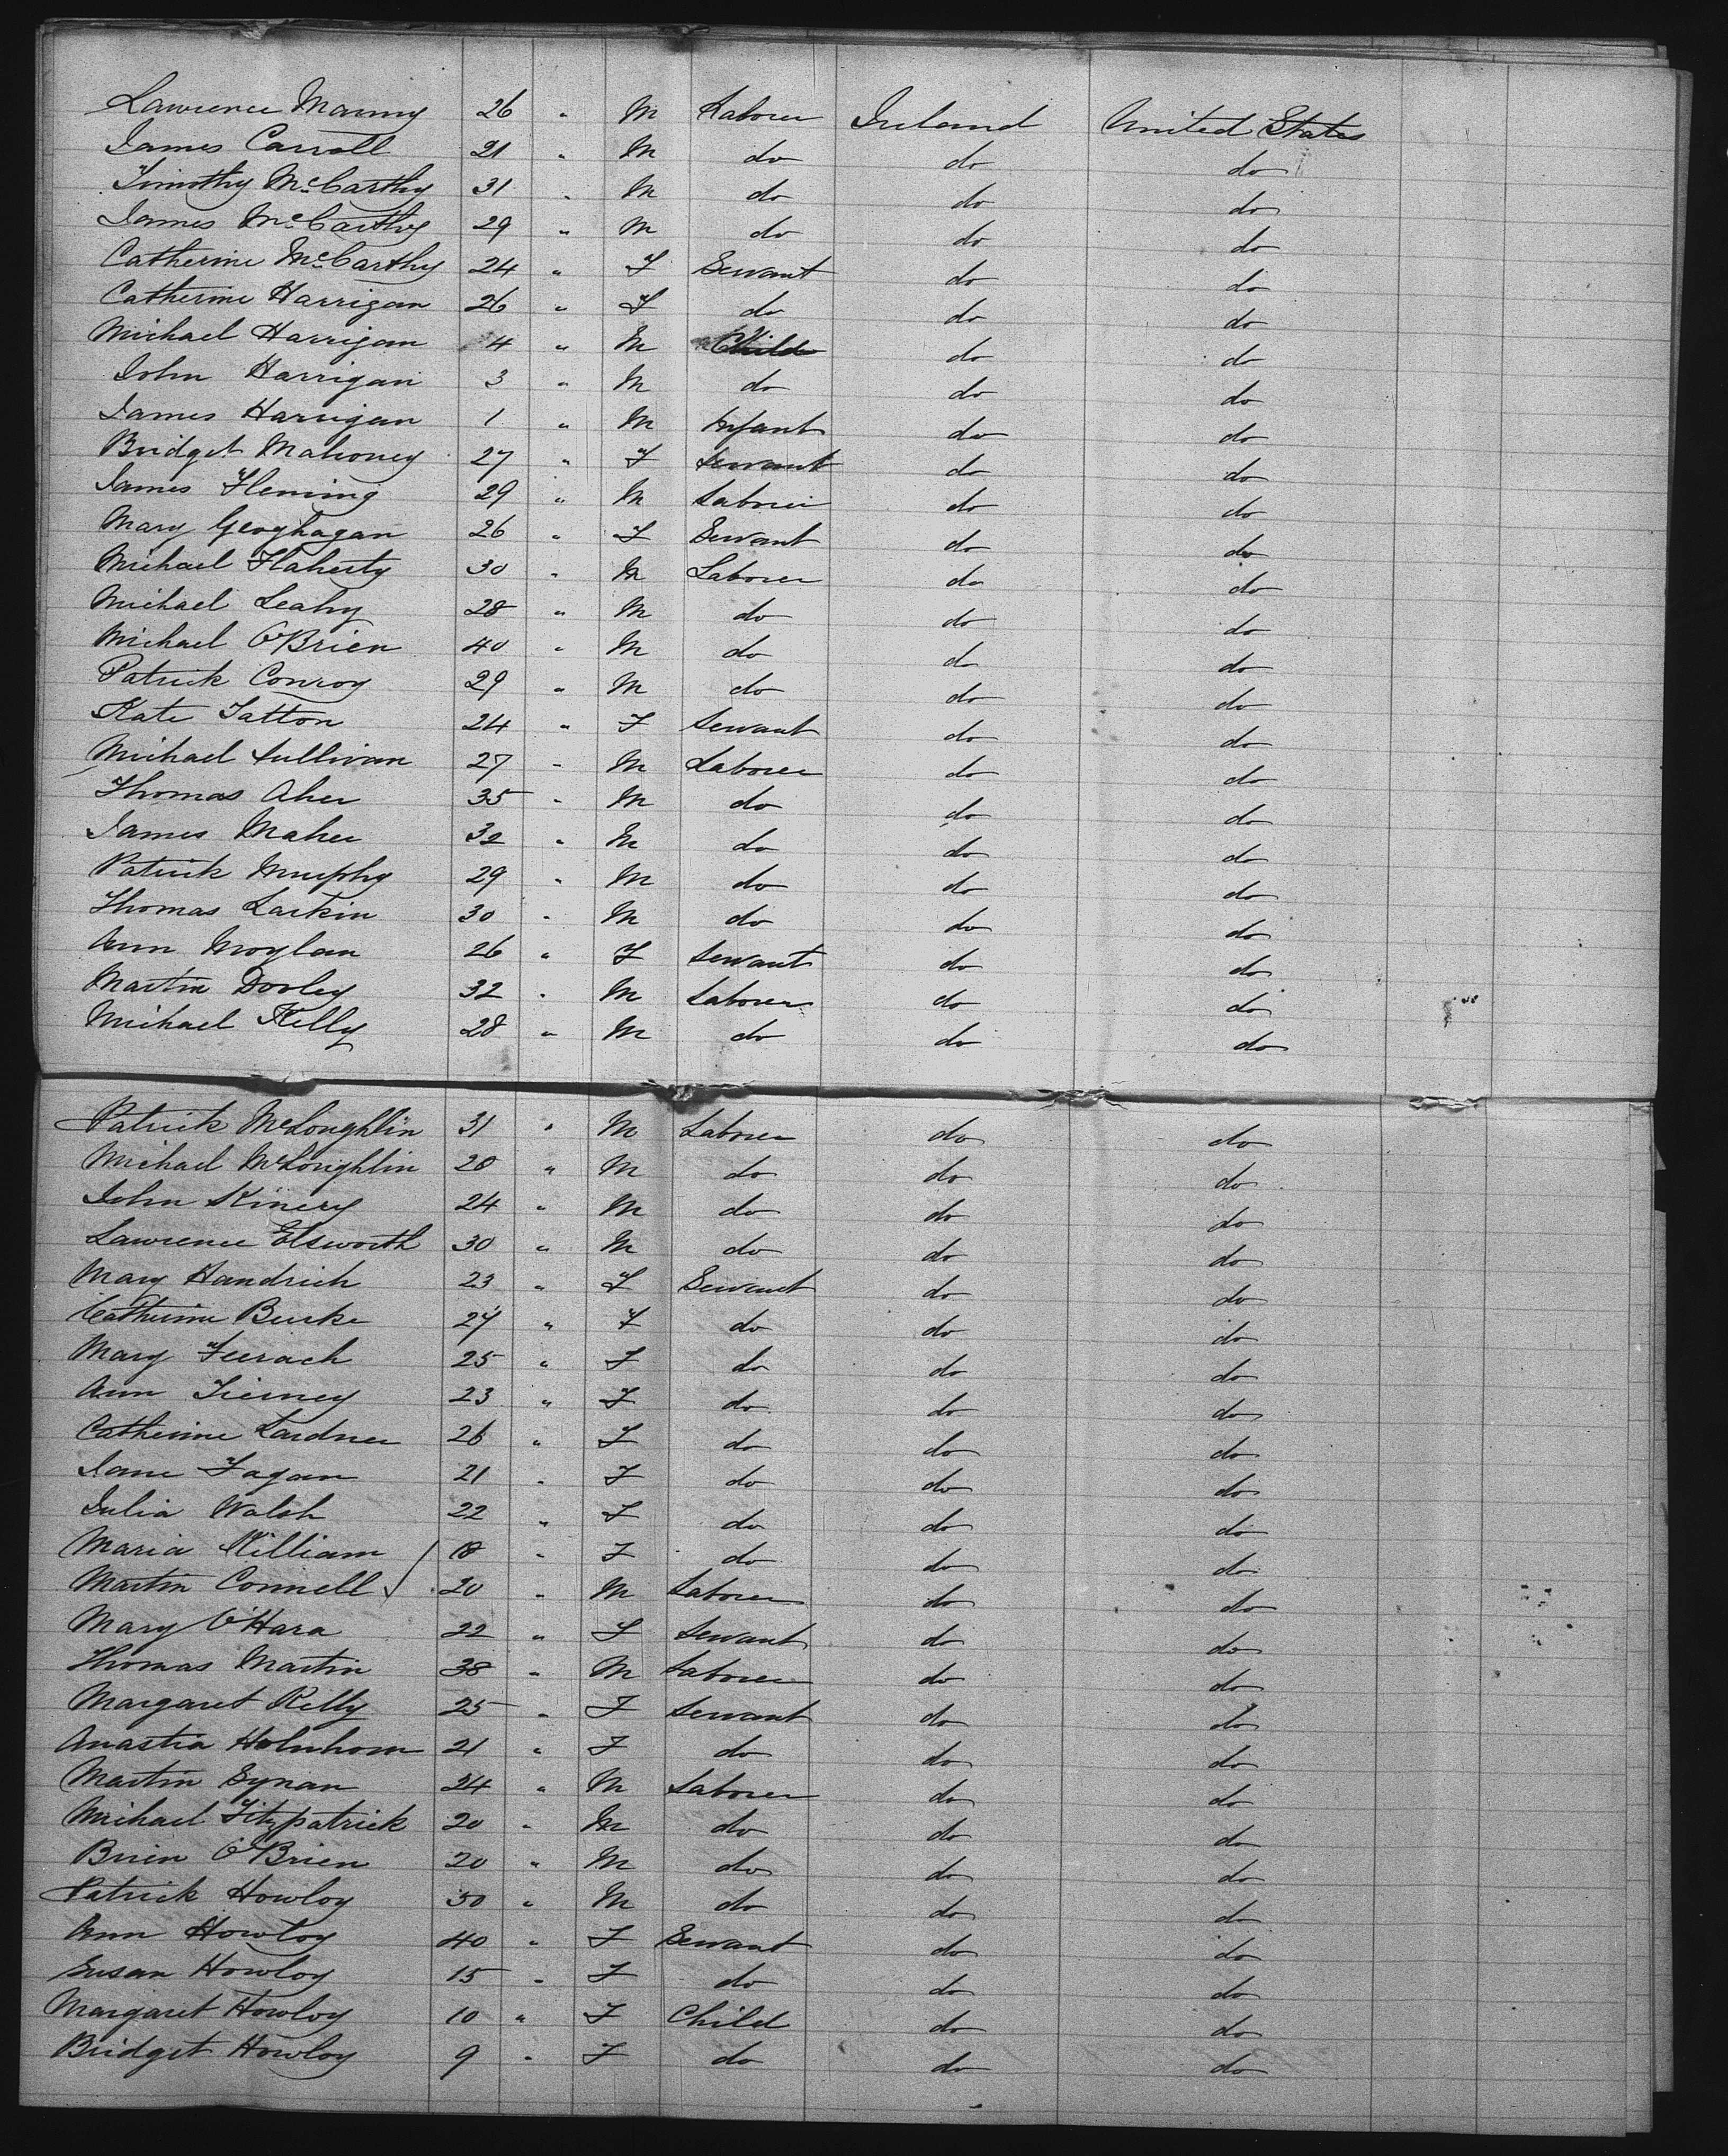 Lawrence Manny 26 " M Laborer Ireland United States
James Carroll 21 " M do do do
Timothy McCarthy 31 " M do do do
James McCarthy 29 " M do do do
Catherine McCarthy 24 " F Servant do do
Catherine Harrigan 26 " F do do do
Michael Harrigan 4 " M Child do do
John Harrigan 3 " M do do do
James Harrigan 1 " M Infant do do
Bridget Mahoney 27 " F Servant do do
James Fleming 29 " M Laborer do do
Mary Geoghagan 26 " F Servant do do
Michael Flaherty 30 " M Laborer do do
Michael Leahy 28 " M do do do
Michael O'Brien 40 " M do do do
Patrick Conroy 29 " M do do do
Kate Tatton 24 " F Servant do do
Michael Sullivan 27 " M Laborer do do
Thomas Aher 35 " M do do do
James Maher 32 " M do do do
Patrick Murphy 29 " M do do do
Thomas Larkin 30 " M do do do
Ann Moylan 26 " F Servant do do
Martin Dooley 32 " M Laborer do do
Michael Kelly 28 " M do do do
Patrick McLoughlin 31 " M Laborer do do
Michael McLoughlin 20 " M do do do
John Kinery 24 " M do do do
Lawrence Elsworth 30 " M do do do
Mary Handrich 23 " F Servant do do
Catherine Burke 27 " F do do do
Mary Feerach 25 " F do do do
Ann Tierney 23 " F do do do
Catherine Lardner 26 " F do do do
Jane Fagan 21 " F do do do
Julia Walsh 22 " F do do do
Maria Killiam 18 " F do do do
Martin Connell 20 " M Laborer do do
Mary O'Hara 22 " F Servant do do
Thomas Martin 38 " M Laborer do do
Margaret Kelly 25 " F Servant do do
Anastia 21 " F do do do
Martin Synan 24 " M Laborer do do
Michael Fitzpatrick 20 " M do do do
Brien O'Brien 20 " M do do do
Patrick Howloy 50 " M do do do
Ann Howloy 40 " F Servant do do
Susan Howloy 15 " F do do do
Margaret Howloy 10 " F Child do do
Bridget Howloy 9 " F do do do